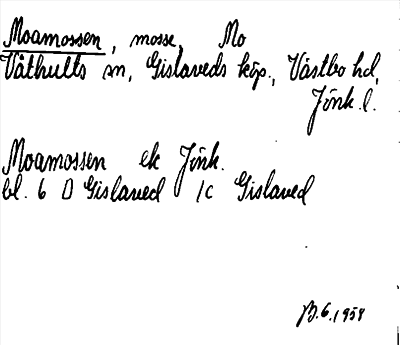 Moamossen, mosse, Mo
Våthults sn, Gislaveds köp., Västbo hd,
Jönk. l.
Moamossen ek Jönk.
bl. 6 D Gislaved 1c Gislaved
B.6.1958